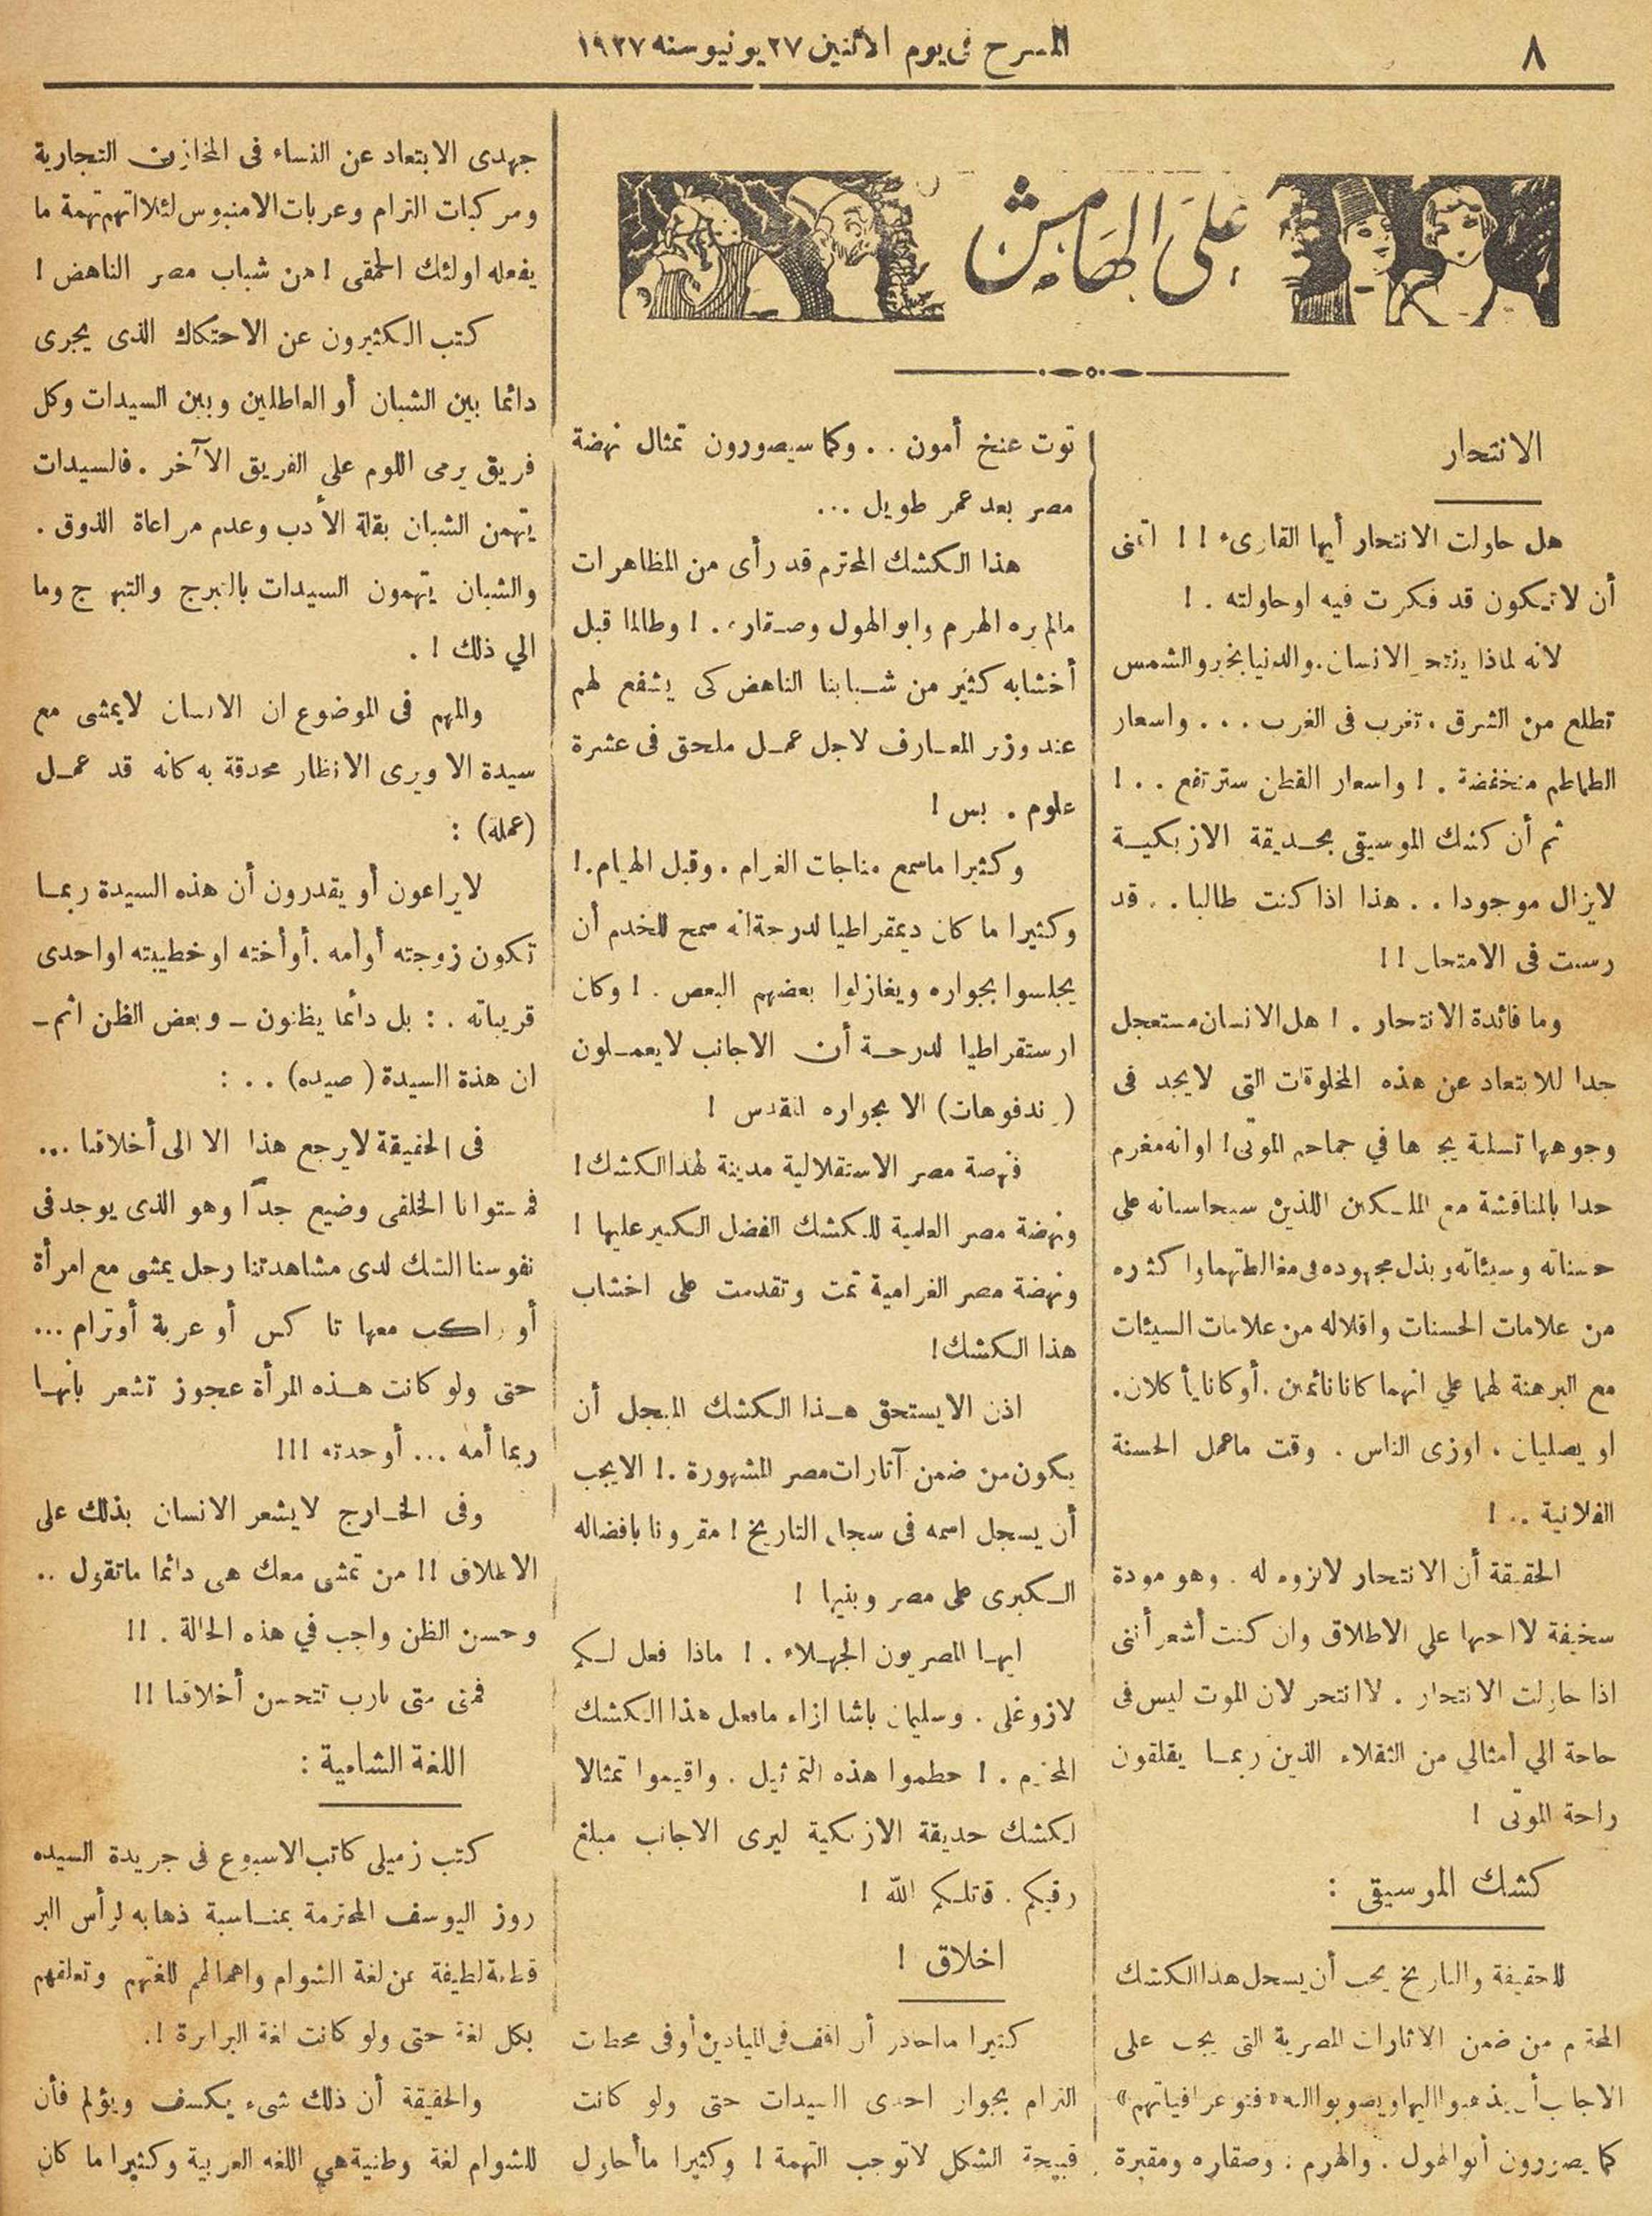 ٨
المسرح فى يوم الاثنين ٢٧ يونيو سنه ١٩٢٧
على الهامش
الانتحار
هل حاولت الانتحار أيها القارىء ! ! اتمنى
أن لا تكون قد فكرت فيه او حاولته . !
لانه لماذا ينتحر الانسان . والدنيا بخير والشمس
تطلع من الشرق . تغرب فى الغرب . . . واسعار
الطماطم منخفضة . ! واسعار القطن سترتفع . . !
ثم أن كشك الموسيقى بحديقة الازبكية
لايزال موجودا . . هذا اذا كنت طالبا . . قد
رسبت فى الامتحان ! !
وما فائدة الانتحار . ! هل الانسان مستعجل
جدا للابتعاد عن هذه المخلوقات التى لايجد فى
وجوهها تسلية يجدها في جماجم الموتى ! اوانه مغرم
جدا بالمناقشة مع الملكين اللذين سيحاسبانه على
حسناته وسيئاته وبذل مجهوده فى مغالطتهما واكثاره
من علامات الحسنات واقلاله من علامات السيئات
مع البرهنة لهما علي انهما كانا نائمين . أو كانا يأكلان .
او يصليان . اوزى الناس . وقت ماعمل الحسنة
الفلانية . . !
الحقيقة أن الانتحار لالزوم له . وهو مودة
سخيفة لااحبها علي الاطلاق وان كنت أشعر أننى
اذا حاولت الانتحار . لاانتحر لان الموت ليس فى
حاجة الي أمثالي من الثقلاء الذين ربما يقلقون
راحة الموتى !
كشك الموسيقى :
للحقيقة والتاريخ يجب أن يسجل هذا الكشك
المحترم من ضمن الاثارات المصرية التى يجب على
الاجانب أن يذهبوا اليها ويصوبوا اليه «فتوغرافياتهم»
كما يصورون أبوالهول . والهرم . وصقاره ومقبرة
توت عنخ أمون . . وكما سيصورون تمثال نهضة
مصر بعد عمر طويل ...
هذا الكشك المحترم قد رأى من المظاهرات
مالم يره الهرم وابو الهول وصقاره . ! وطالما قبل
أخشابه كثير من شبابنا الناهض كى يشفع لهم
عند وزر المعارف لاجل عمل ملحق فى عشرة
علوم . بس !
وكثيرا ماسمع مناجات الغرام . وقبل الهيام . !
وكثيرا ما كان ديمقراطيا لدرجة انه سمح للخدم أن
يجلسوا بجواره ويغازلوا بعضهم البعض . ! وكان
ارستقراطيا لدرجة أن الاجانب لايعملون
( رندفوهات ) الا بجواره المقدس !
فنهضة مصر الاستقلالية مدينة لهذا الكشك !
ونهضة مصر العلمية للكشك الفضل الكبير عليها !
ونهضة مصر الغرامية تمت وتقدمت على اخشاب
هذا الكشك !
اذن الايستحق هذا الكشك المبجل أن
يكون من ضمن آثارات مصر المشهورة . ! الايجب
أن يسجل اسمه فى سجل التاريخ ! مقرونا بافضاله
الكبرى على مصر وبنيها !
ايها المصريون الجهلاء . ! ماذا فعل لكم
لازوغلى . وسليمان باشا ازاء مافعل هذا الكشك
المحترم . ! حطموا هذه التماثيل . واقيموا تمثالا
لكشك حديقة الازبكية ليرى الاجانب مبلغ
رقيكم . قاتلكم الله !
اخلاق !
كثيرا مااحاذر أن اقف فى الميادين أو فى محطات
الترام بجوار احدى السيدات حتى ولو كانت
قبيحة الشكل لاتوجب التهمة ! وكثيرا ماأحاول
جهدى الابتعاد عن النساء فى المخازن التجارية
ومركبات الترام وعربات الامنبوس لئلا اتهم تهمة ما
يفعله اولئك الحمقى ! من شباب مصر الناهض !
كتب الكثيرون عن الاحتكاك الذى يجرى
دائما بين الشبان أو العاطلين وبين السيدات وكل
فريق يرمى اللوم على الفريق الآخر . فالسيدات
يتهمن الشبان بقلة الأدب وعدم مراعاة الذوق .
والشبان يتهمون السيدات بالتبرج والتبهرج وما
الي ذلك ! .
والمهم فى الموضوع ان الانسان لايمشى مع
سيدة الا ويرى الانظار محدقة به كانه قد عمل
(عمله) :
لايراعون أو يقدرون أن هذه السيدة ربما
تكون زوجته أوأمه . أوأخته اوخطيبته اواحدى
قريباته . : بل دائما يظنون ــ وبعض الظن اثم ــ
ان هذة السيدة ( صيده ) . . :
فى الحقيقة لايرجع هذا الا الى أخلاقنا ...
فمستوانا الخلقى وضيع جدًا وهو الذى يوجد فى
نفوسنا الشك لدى مشاهدتنا رجل يمشى مع امرأة
أو راكب معها تاكس أو عربة أوترام ...
حتى ولو كانت هذه المرأة عجوز تشعر بانها
ربما أمه ... أوجدته !!!
وفى الخارج لايشعر الانسان بذلك على
الاطلاق !! من تمشى معك هى دائما ماتقول ..
وحسن الظن واجب في هذه الحالة . !!
فمتى متى يارب تتحسن أخلاقنا !!
اللغة الشامية :
كتب زميلى كاتب الاسبوع فى جريدة السيده
روز اليوسف المحترمة بمناسبة ذهابه لرأس البر
قطعة لطيفة عن لغة الشوام واهمالهم للغتهم وتعلقهم
بكل لغة حتى ولو كانت لغة البرابرة ! .
والحقيقة أن ذلك شىء يكسف ويؤلم فأن
للشوام لغة وطنية هي اللغه العربية وكثيرا ما كان